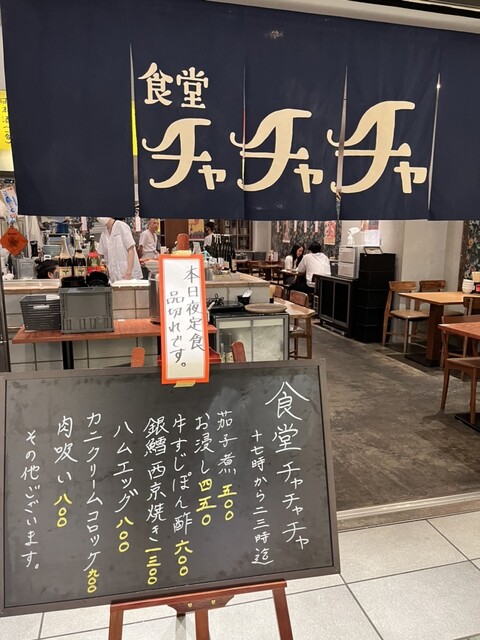 食堂
チャチャチャ
本日夜定食
品切れです。
食堂チャチャチャ
十七時から二三時迄
茄子煮 五〇〇
お浸し 四五〇
牛すじぽん酢 六〇〇
銀鱈西京焼き 一三〇〇
ハムエッグ 八〇〇
カニクリームコロッケ 九〇〇
肉吸い 八〇〇
その他ございます。